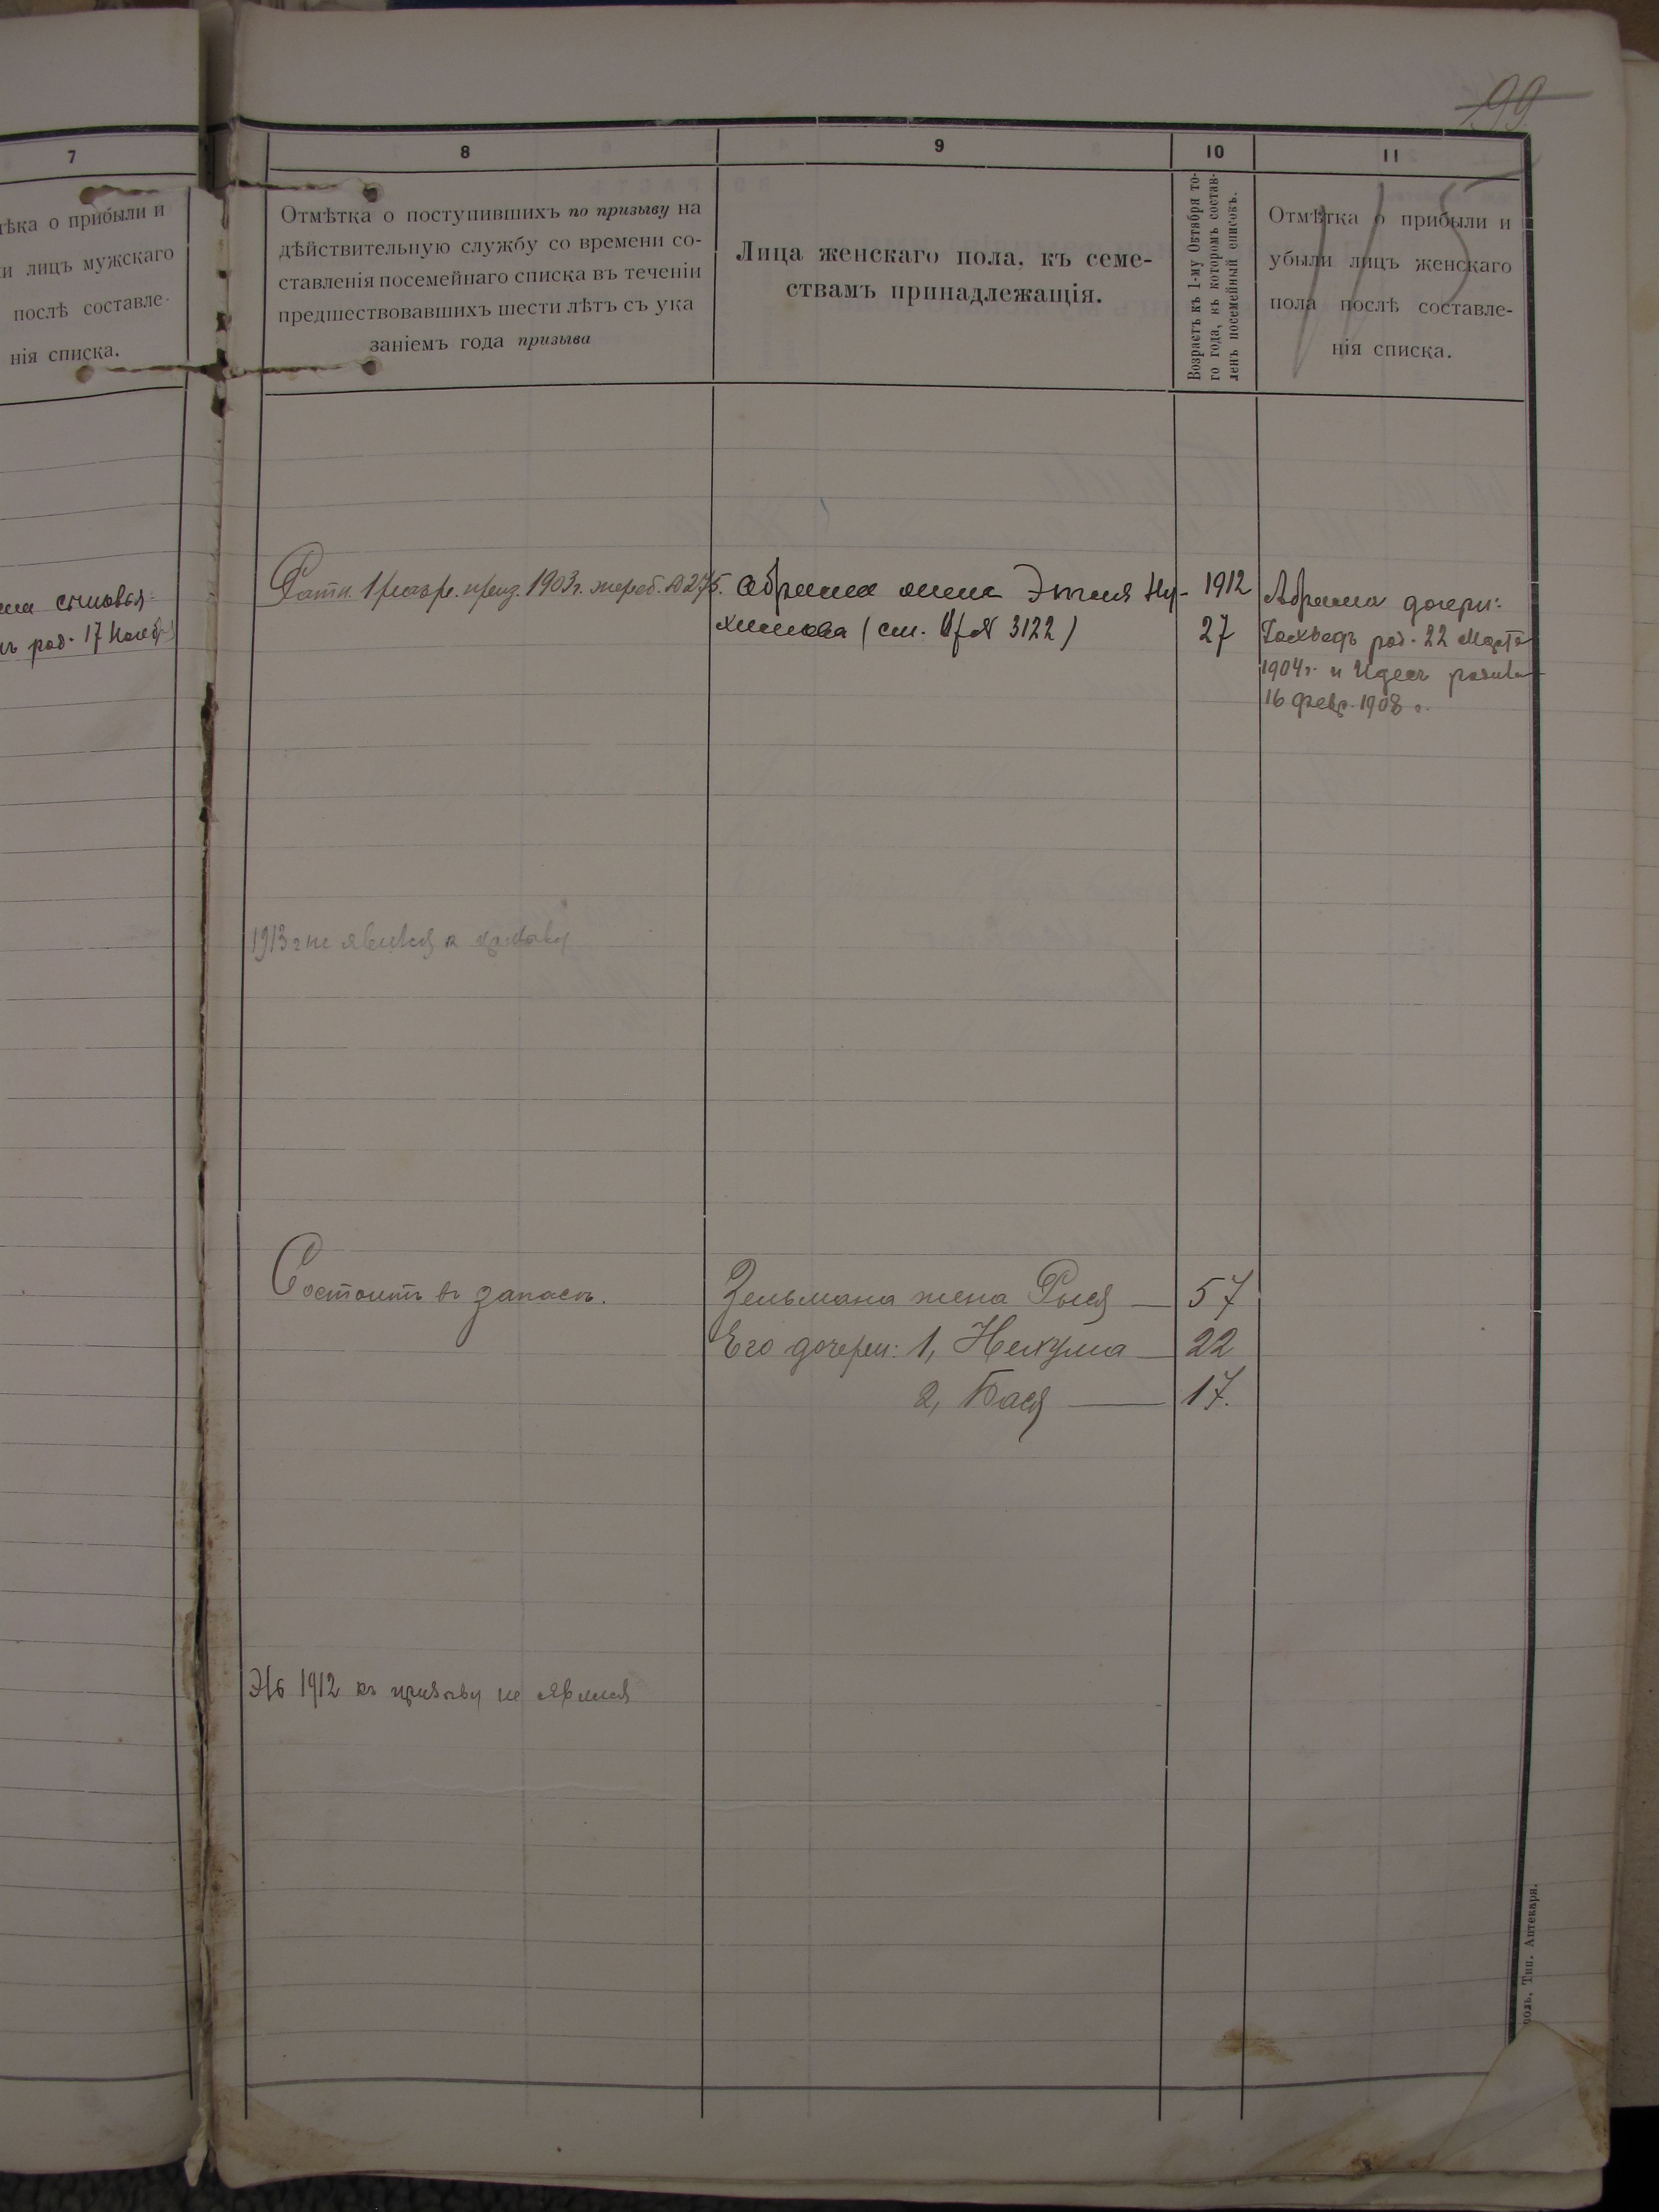 99
7
8
9
10
11
115
тѣка о прибыли и
и лицъ мужскаго
послѣ составле-
нія списка.
Отмѣтка о поступившихъ по призыву на
дѣйствительную службу со времени со-
ставленія посемейнаго списка въ теченіи
предшествовавшихъ шести лѣтъ съ ука
заніемъ года призыва
Лица женскаго пола, къ семе-
ствамъ принадлежащія.
Возрастъ къ 1-му Октября то-
го года, въ которомъ состав-
ленъ посемейный списокъ.
Отмѣтка о прибыли и
убыли лицъ женскаго
пола послѣ составле-
нія списка.
сыновья:
род. 17 Ноября
Ратн. 1 разр. приз. 1903 г. жереб. № 275.
Абрама жена Этля Ну-
химова (см. № 3122)
1912
27
Абрама дочери:
род. 22 Марта
1904 г. и Идесъ родилась
16 февр. 1908 г.
1913 г не явился к призыву
Состоитъ въ запасѣ.
Зельмана жена Рыся — 57
Его дочери: 1, Нехума — 22
2, Бася — 17.
Не 1912 къ призыву не явился
поль. Тип. Аптекаря.